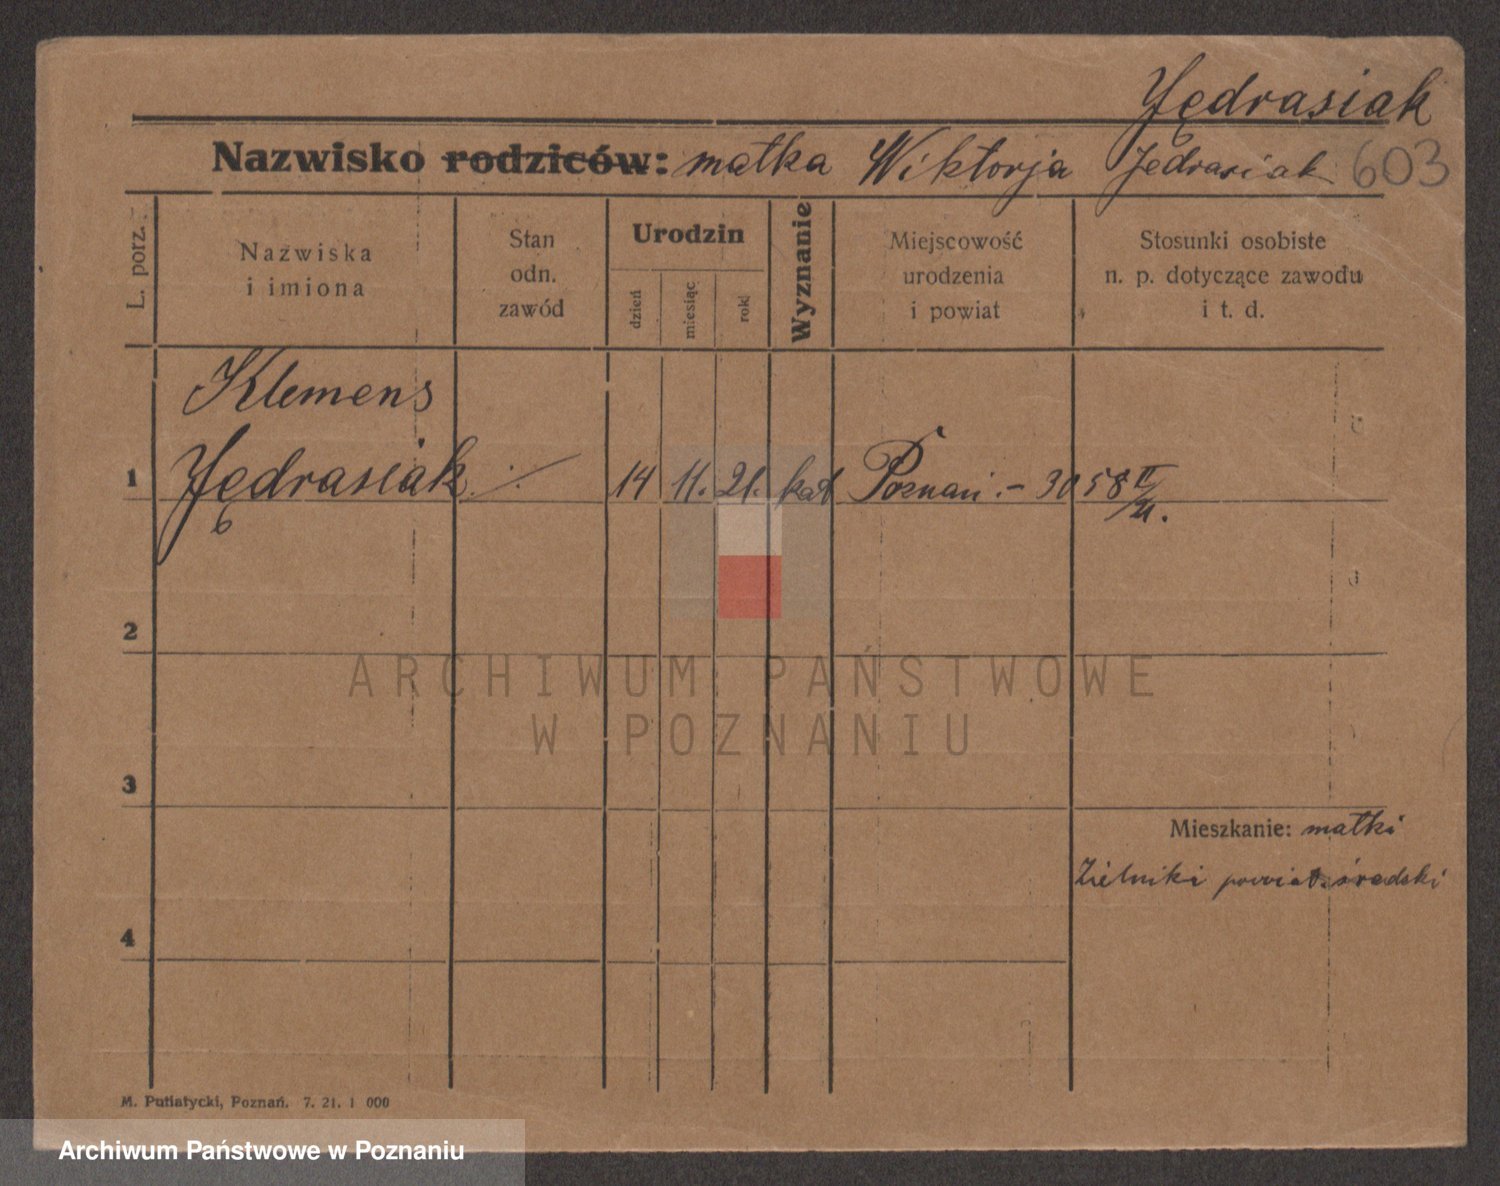 Jędrasiak
Nazwisko rodziców: matka Wiktorja Jędrasiak 603
L. porz.
Nazwiska
i imiona
Stan
odn.
zawód
Urodzin
dzień
miesiąc
rok
Wyznanie
Miejscowość
urodzenia
i powiat
Stosunki osobiste
n. p. dotyczące zawodu
i t. d.
Klemens
1 Jędrasiak ./. 14 11. 21. kat Poznań.- 3058 II/21.
2
3
Mieszkanie: matki
Zielniki powiat średzki
4
M. Putiatycki, Poznań. 7. 21. 1 000
ARCHIWUM PAŃSTWOWE
W POZNANIU
Archiwum Państwowe w Poznaniu